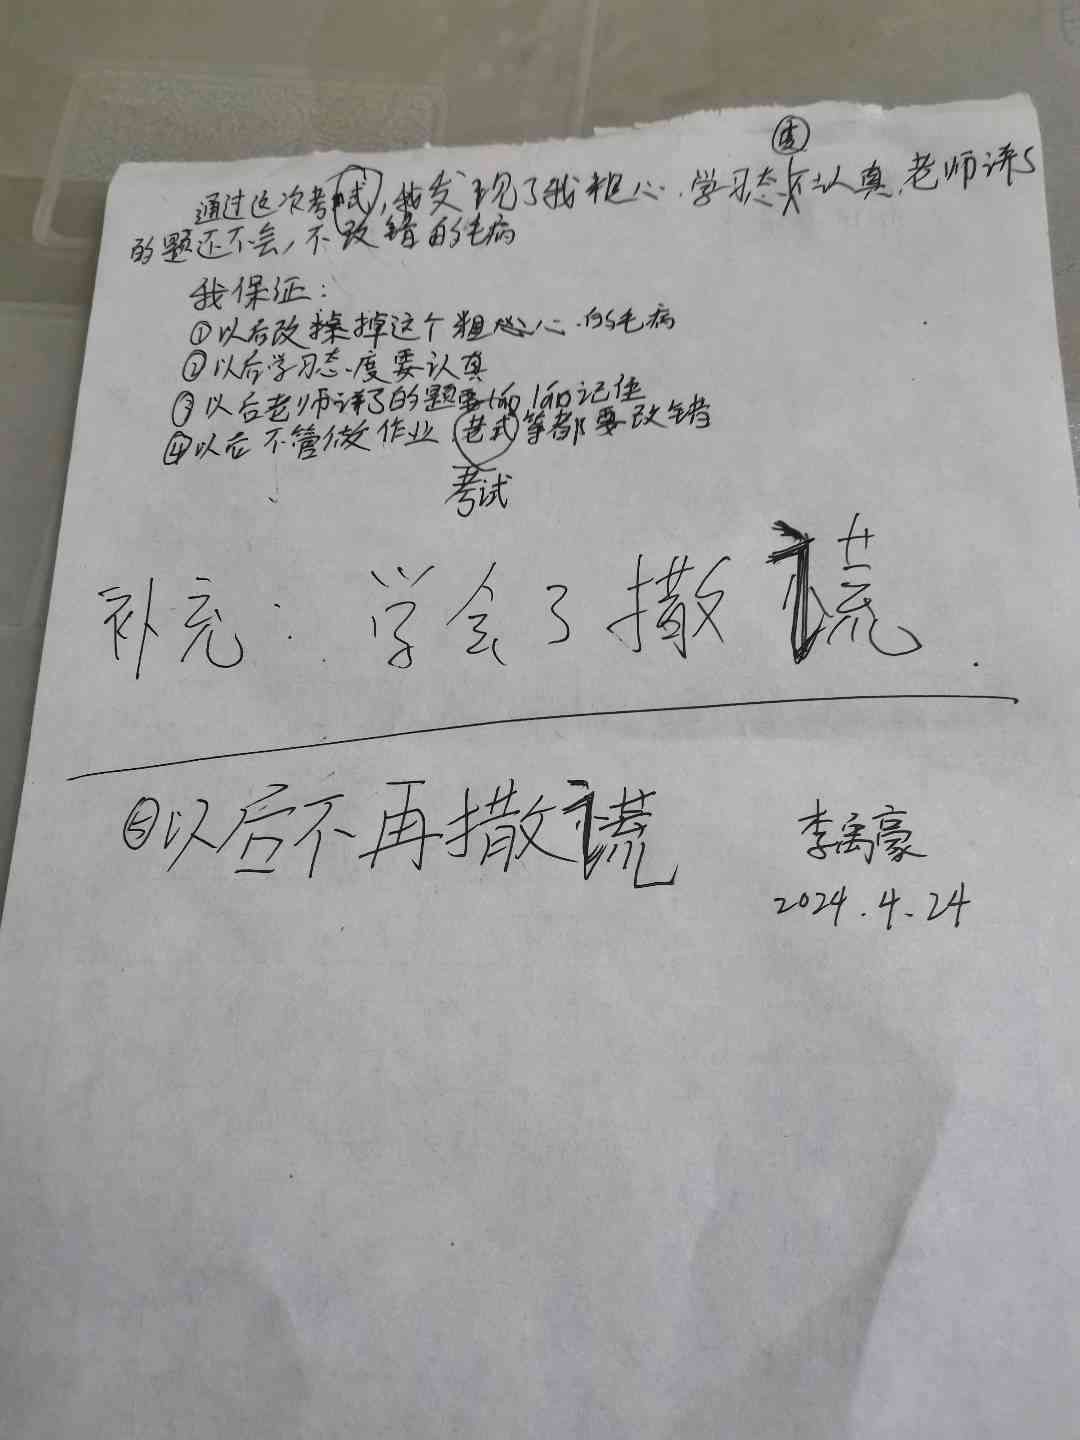 度
通过这次考试,我发现了我粗心.学习态不认真.老师讲了
的题还不会,不改错的毛病
我保证:
①以后改掉这个粗心的毛病
②以后学习态度要认真
③以后老师讲了的题要记住
④以后不管做作业考式等都要改错
考试
补充:学会了撒谎.
⑤以后不再撒谎
李禹豪
2024.4.24